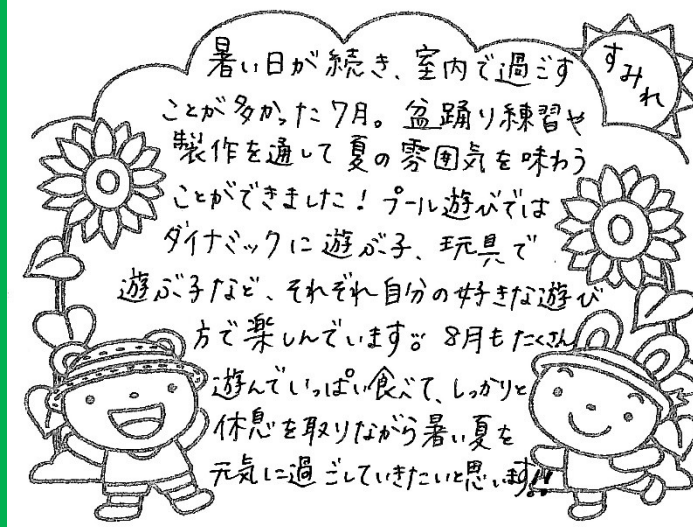 すみれ
暑い日が続き、室内で過ごす
ことが多かった7月。盆踊り練習や
製作を通して夏の雰囲気を味わう
ことができました！プール遊びでは
ダイナミックに遊ぶ子、玩具で
遊ぶ子など、それぞれ自分の好きな遊び
方で楽しんでいます。8月もたくさん
遊んでいっぱい食べて、しっかりと
休息を取りながら暑い夏を
元気に過ごしていきたいと思います!!